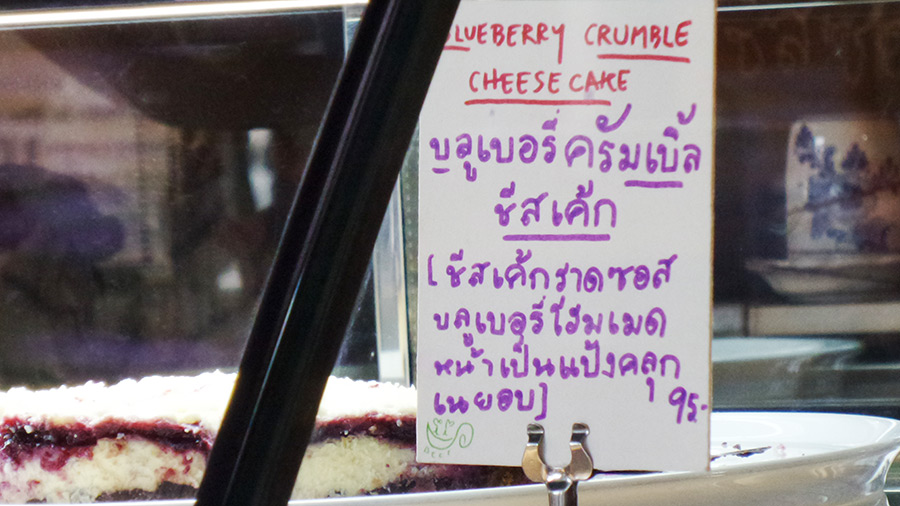 BLUEBERRY CRUMBLE
CHEESE CAKE
บลูเบอรี่ครัมเบิ้ล
ชีสเค้ก
(ชีสเค้กราดซอส
บลูเบอรี่โฮมเมด
หน้าเป็นแป้งคลุก
เนยอบ) 95.-